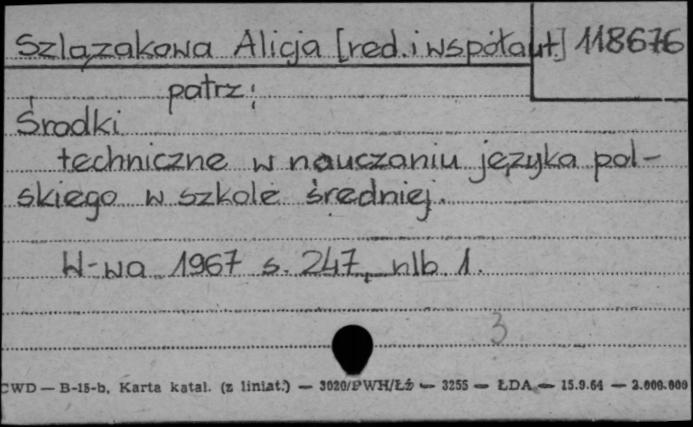 Szlązakowa Alicja [red. i współaut.] 118676
patrz:
Środki
techniczne w nauczaniu języka pol-
skiego w szkole średniej.
W-wa 1967 s. 247, nlb 1.
3
CWD — B-15-b, Karta katal. (z liniat.) — 3020/PWH/Łź — 3255 — ŁDA — 15.9.64 — 2.000.000